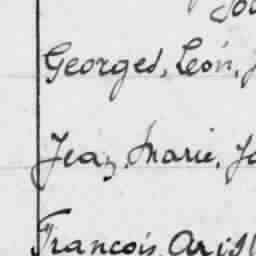 Georges, Léon,
Jean, Marie,
François,